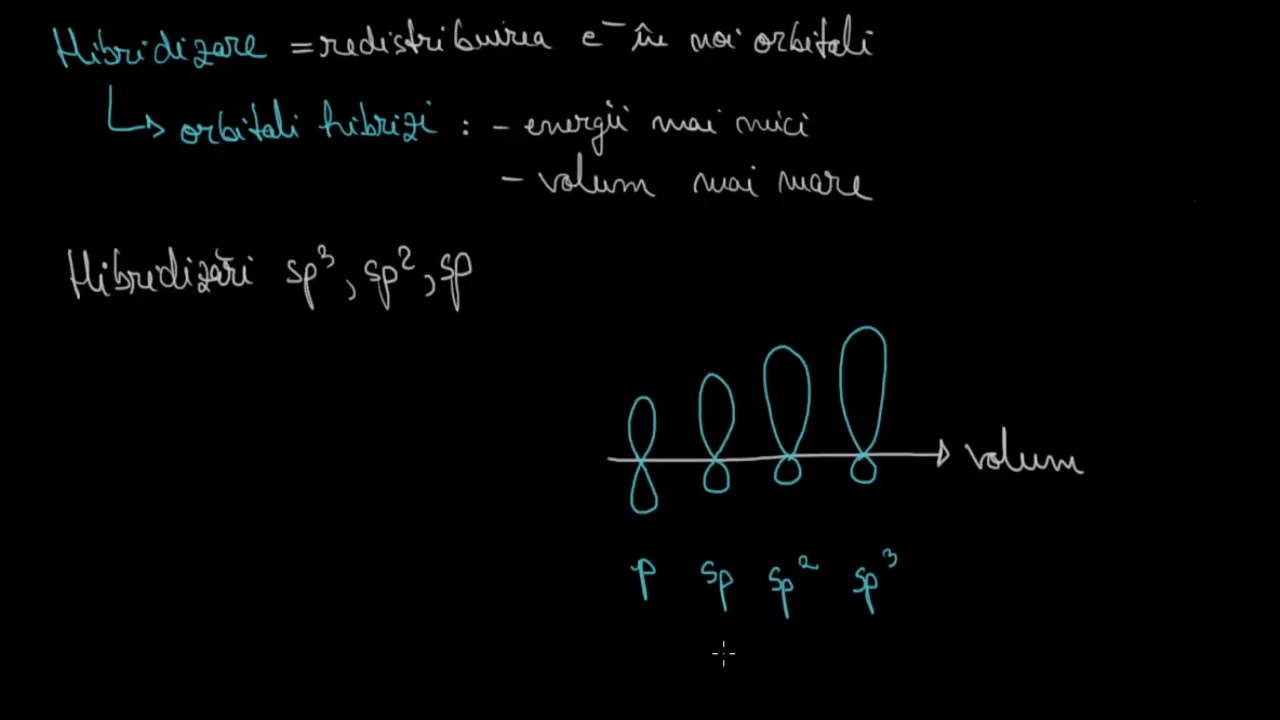 Hibridizare = redistribuirea e⁻ în noi orbitali
↳ orbitali hibrizi : - energii mai mici
- volum mai mare
Hibridizări sp³, sp², sp
volum
p sp sp² sp³